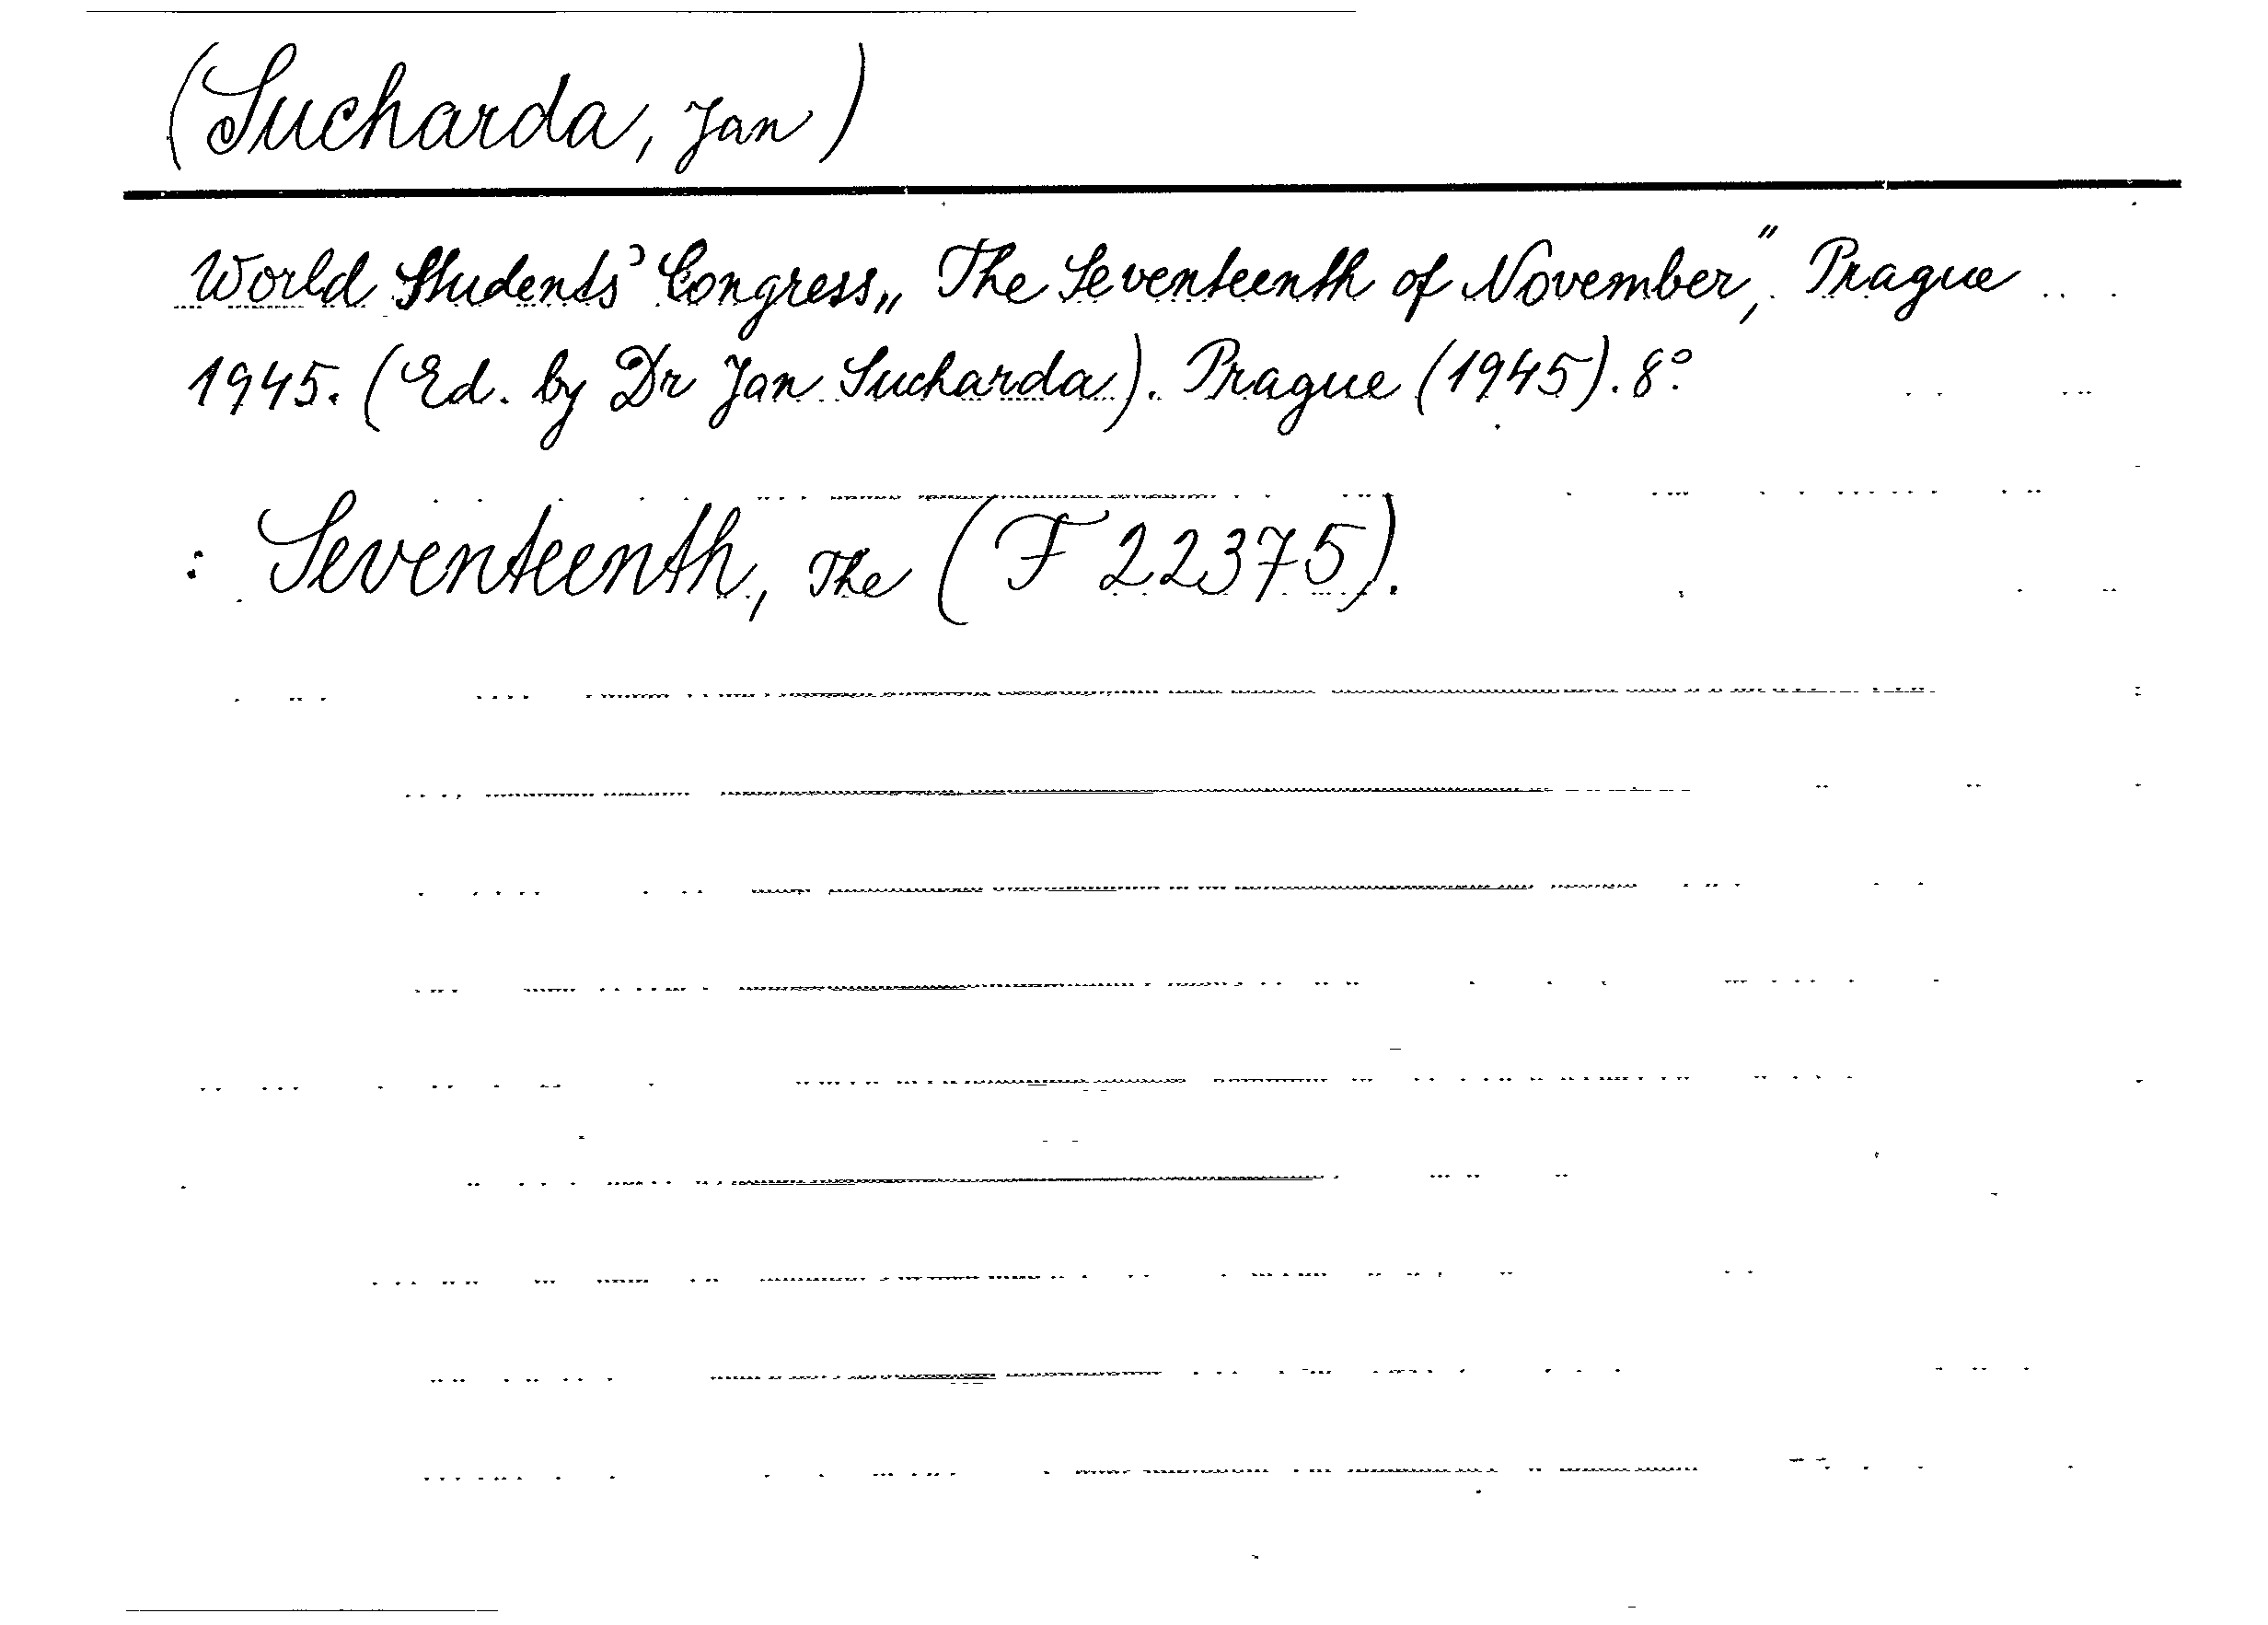 (Sucharda, Jan)
World Students' Congress „The Seventeenth of November", Prague
1945. (Ed. by Dr Jan Sucharda). Prague (1945). 8°.
: Seventeenth, The (F 22375).